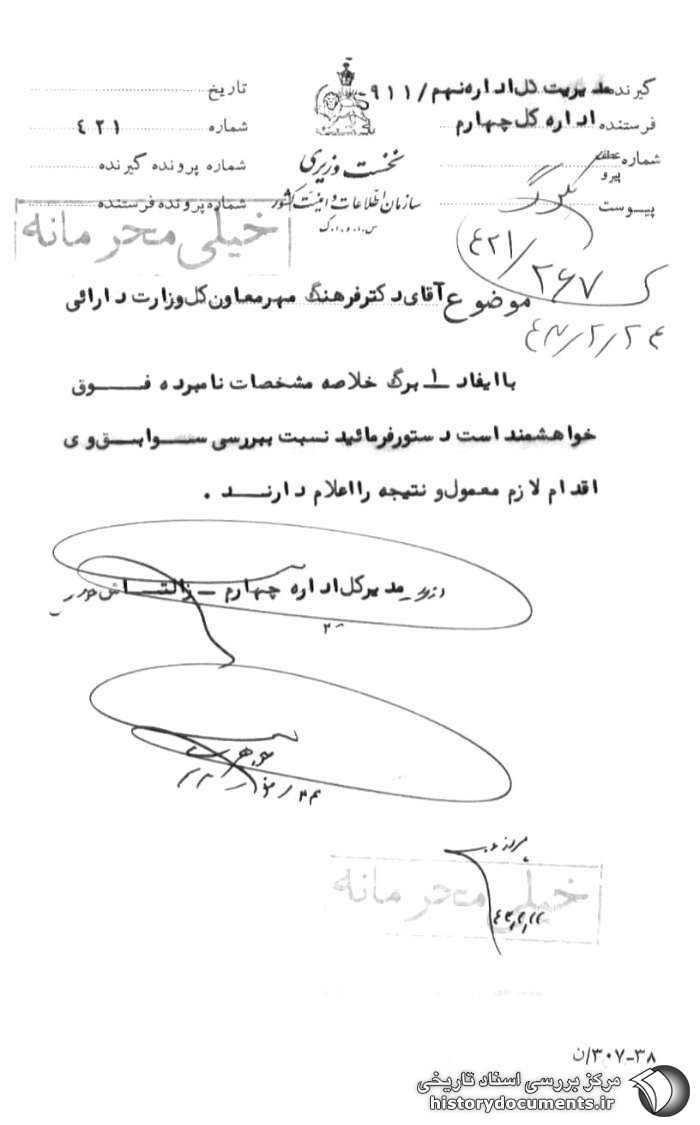 گیرنده مدیریت کل اداره نهم /۹۱۱-
فرستنده اداره کل چهارم
شماره عطف
پیرو
پیوست
نخست وزیری
سازمان اطلاعات و امنیت کشور
س.ا.و.ا.ک
تاریخ
شماره ۴۲۱
شماره پرونده گیرنده
شماره پرونده فرستنده
خیلی محرمانه
۴۲۱/۲۶۷
۴۳/۲/۲۴
موضوع آقای دکتر فرهنگ مهر معاون کل وزارت دارائی
با ایفاد ۱ برگ خلاصه مشخصات نامبرده فوق
خواهشمند است دستور فرمائید نسبت ببررسی سوابق وی
اقدام لازم معمول و نتیجه را اعلام دارند .
مدیر کل اداره چهارم – زالتاش
خیلی محرمانه
۳۰۷-۳۸/ن
مرکز بررسی اسناد تاریخی
historydocuments.ir